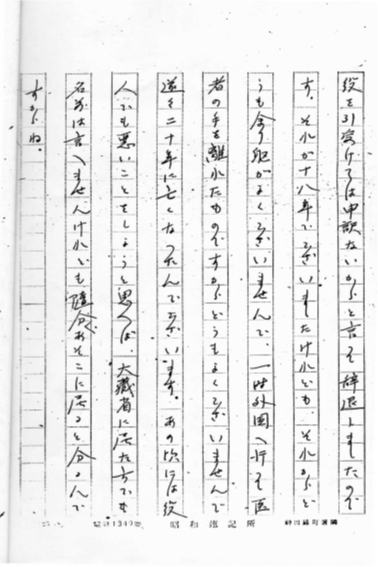 役を引受けては申訳ないからと言って辞退しましたので
す。それが十八年でございましたけれども、それからど
うも余り組がよくございませんで、一時外国へ行って医
者の手を離れたものですからどうもよくございませんで
遂々二十年に亡くなったんでございます。あの頃には役
人でも悪いことをしようと思へば、大蔵省に居た方でも
名前は言へませんけれども随分あそこに居ると分るんで
すからね。
昭和速記所